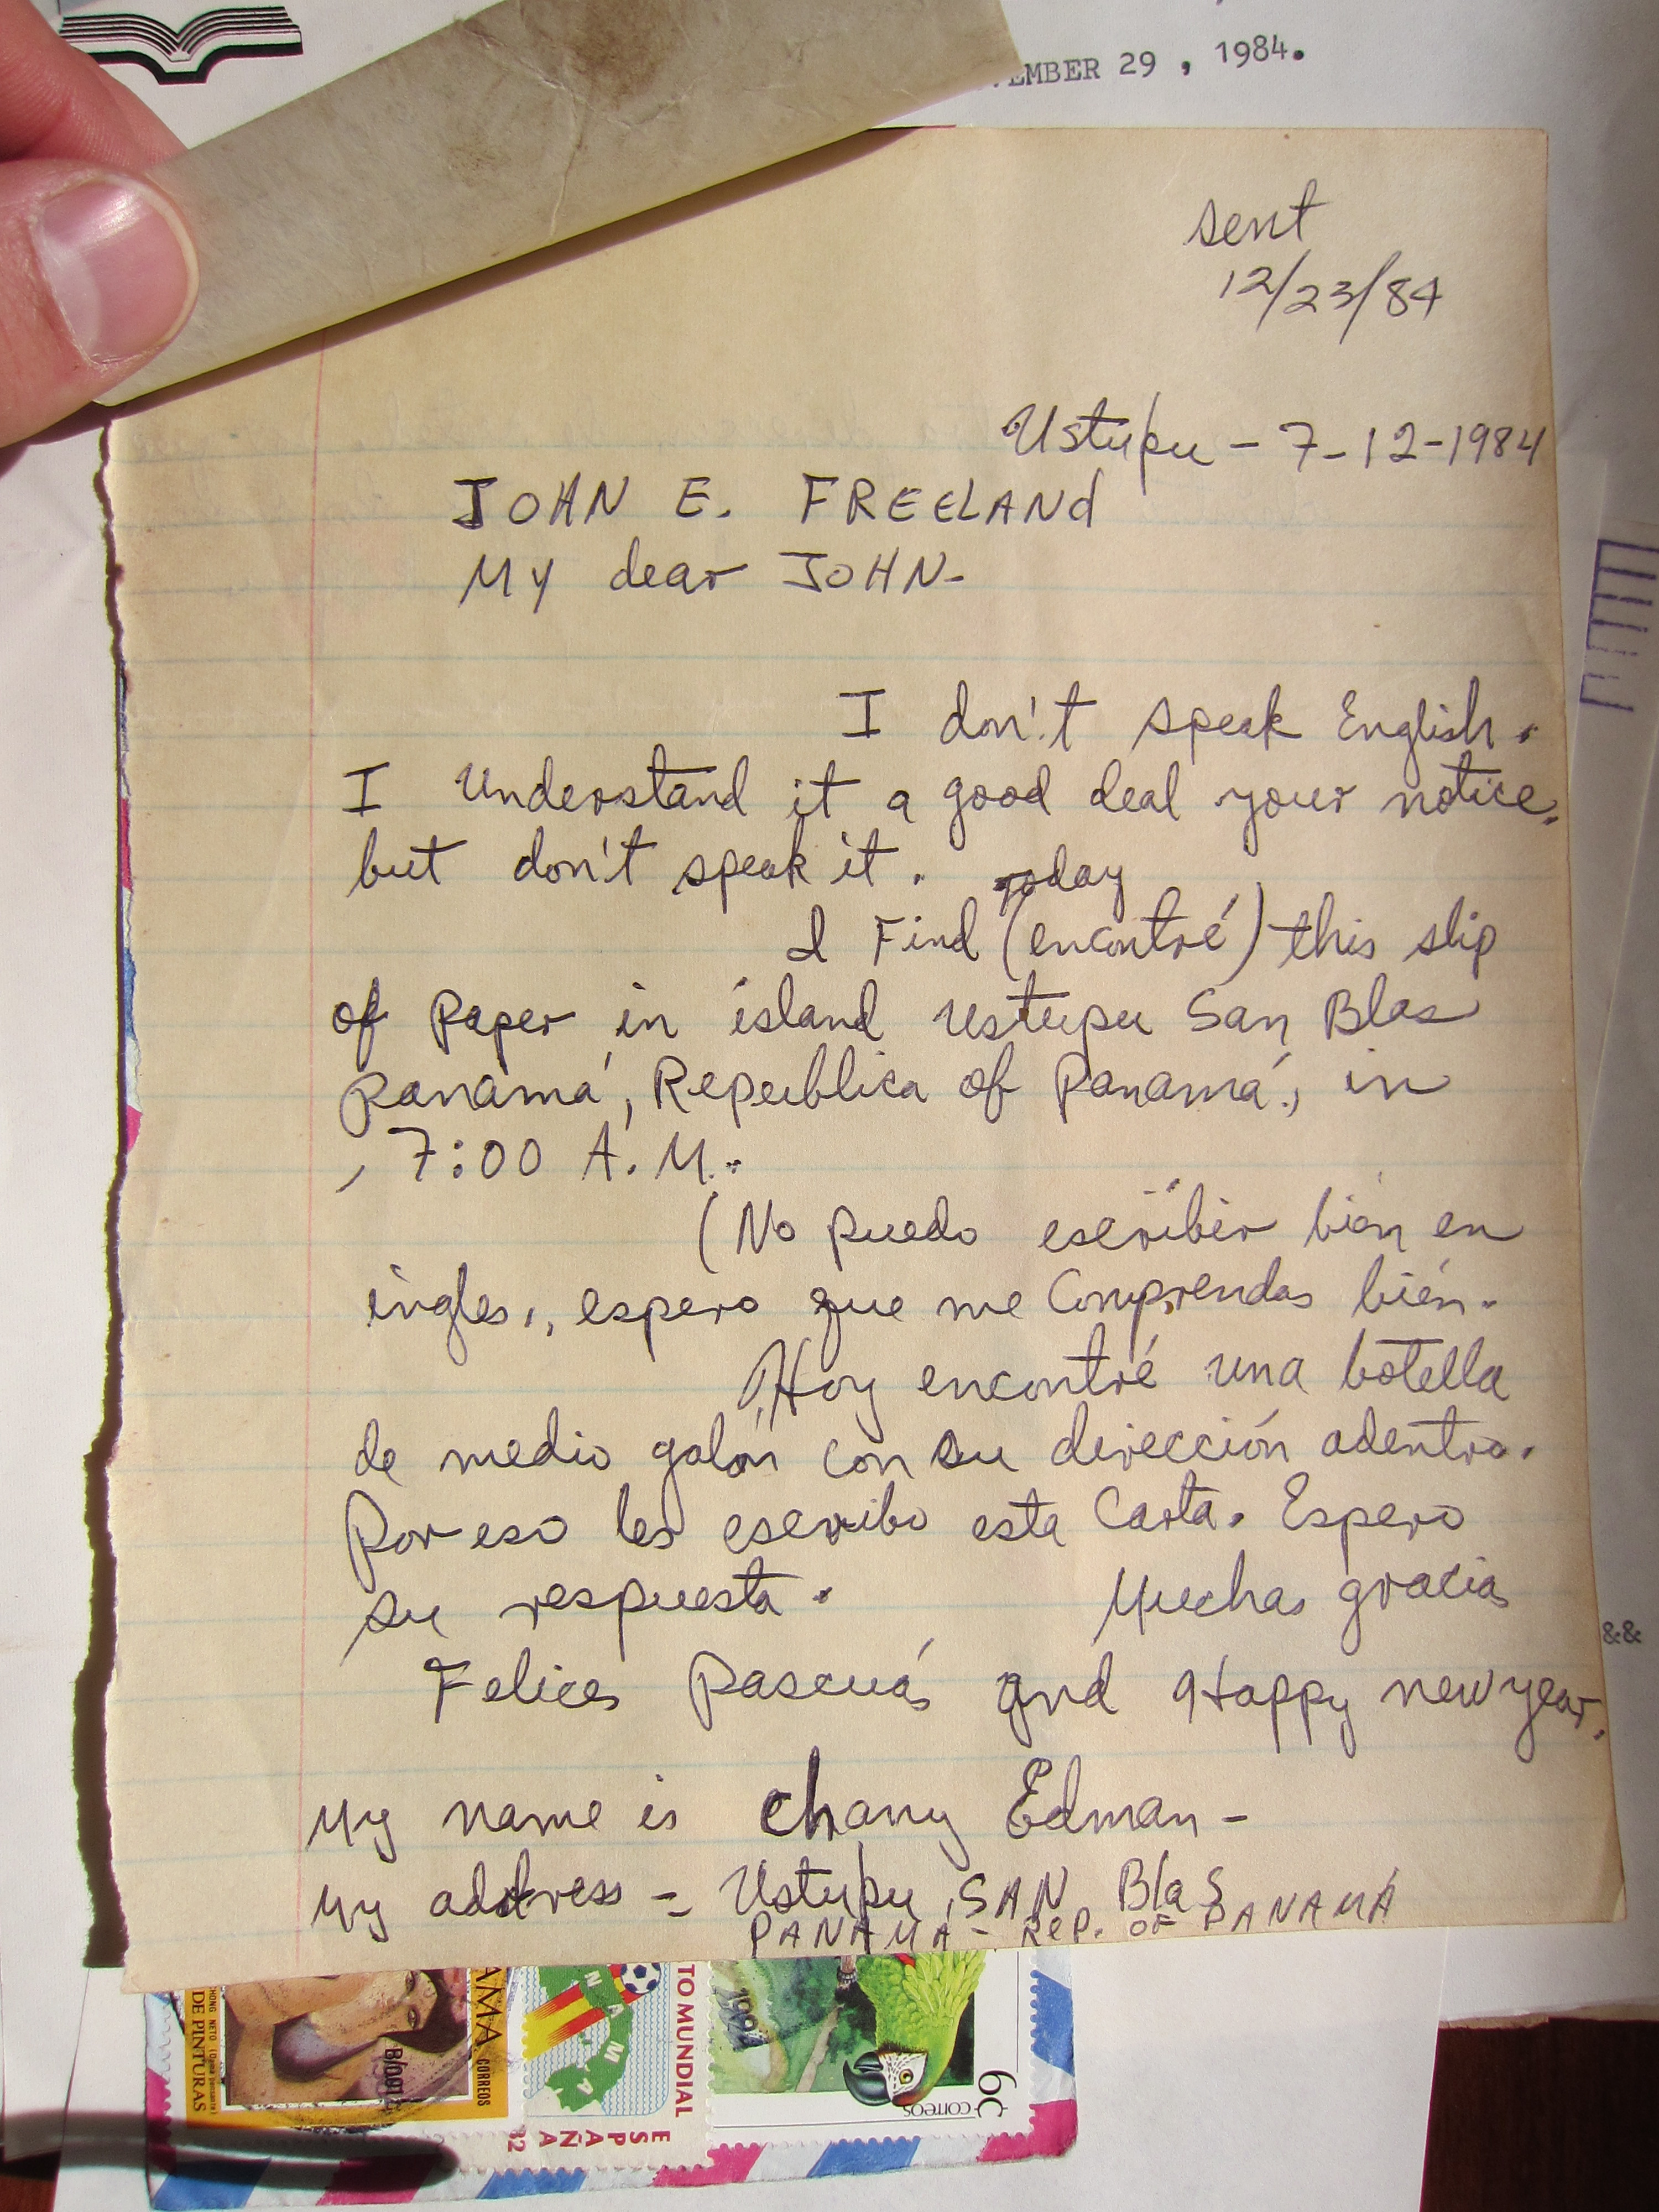 EMBER 29 , 1984.
sent
12/23/84
Ustupu - 7-12-1984
JOHN E. FREELANd
MY dear JOHN-
I don't speak English.
I Understand it a good deal your notice,
but don't speak it. today
I Find (encontré) this slip
of Paper in ísland Ustupu San Blas
Panamá, Repeublica of Panamá., in
, 7:00 A.M..
(No puedo escribir bién en
ingles., espero que me Comprendas bién.
Hoy encontré una botella
de medio galón con su dirección adentro.
Por eso les escribo esta Carta. Espero
su respuesta. Muchas gracias
Felices Pascuás and Happy new year.
My name is Chany Edman-
My address = Ustupu, SAN Blas
PANAMA - REP. OF PANAMÁ
&&
AMA CORREOS
DE PINTURAS
TO MUNDIAL
ESPAÑA
82
NAMA
1984
6c
CORREOS